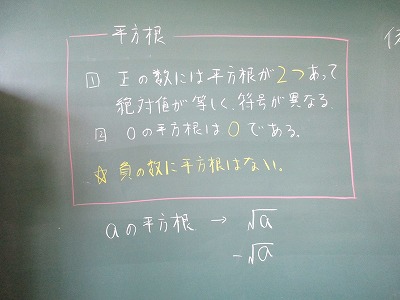 平方根
1 正の数には平方根が2つあって
絶対値が等しく、符号が異なる.
2 0の平方根は0である.
☆負の数に平方根はない.
aの平方根 → √a
-√a